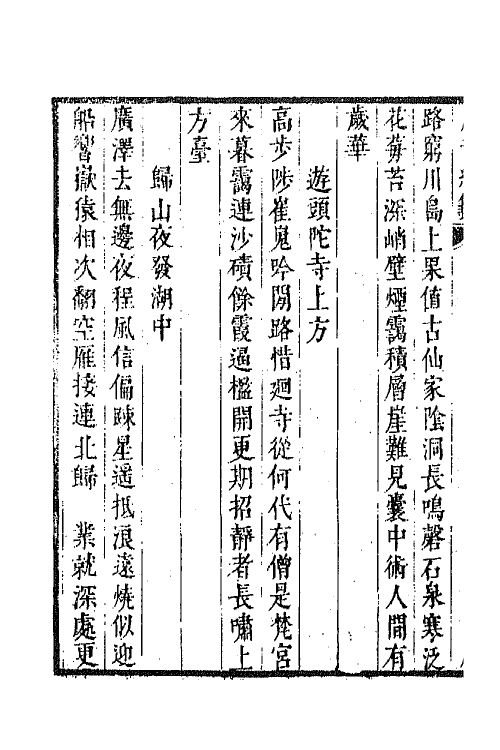 路窮川島上果值古仙家陰洞長鳴磬石泉寒泛
花莓苔深峭壁煙靄積層崖難見囊中術人間有
歲華
遊頭陀寺上方
高步陟崔嵬吟閒路惜迴寺從何代有僧是梵宮
來暮靄連沙磧餘霞逼檻開更期招靜者長嘯上
方臺
歸山夜發湖中
廣澤去無邊夜程風信偏疎星遥抵浪遠燒似迎
船響嶽猿相次翻空雁接連北歸 業就深處更